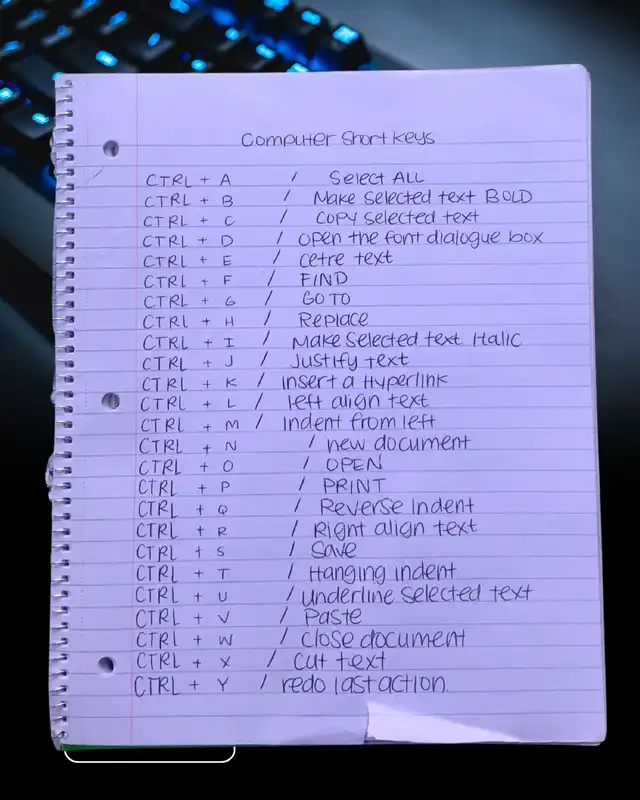 Computer Short Keys
CTRL + A / Select ALL
CTRL + B / Make Selected text BOLD
CTRL + C / COPY selected text
CTRL + D / open the font dialogue box
CTRL + E / cetre text
CTRL + F / FIND
CTRL + G / GO TO
CTRL + H / Replace
CTRL + I / Make Selected text Italic
CTRL + J / Justify text
CTRL + K / insert a Hyperlink
CTRL + L / left align text
CTRL + M / Indent from left
CTRL + N / new document
CTRL + O / OPEN
CTRL + P / PRINT
CTRL + Q / Reverse indent
CTRL + R / Right align text
CTRL + S / Save
CTRL + T / Hanging indent
CTRL + U / underline selected text
CTRL + V / Paste
CTRL + W / Close document
CTRL + X / Cut text
CTRL + Y / redo last action.